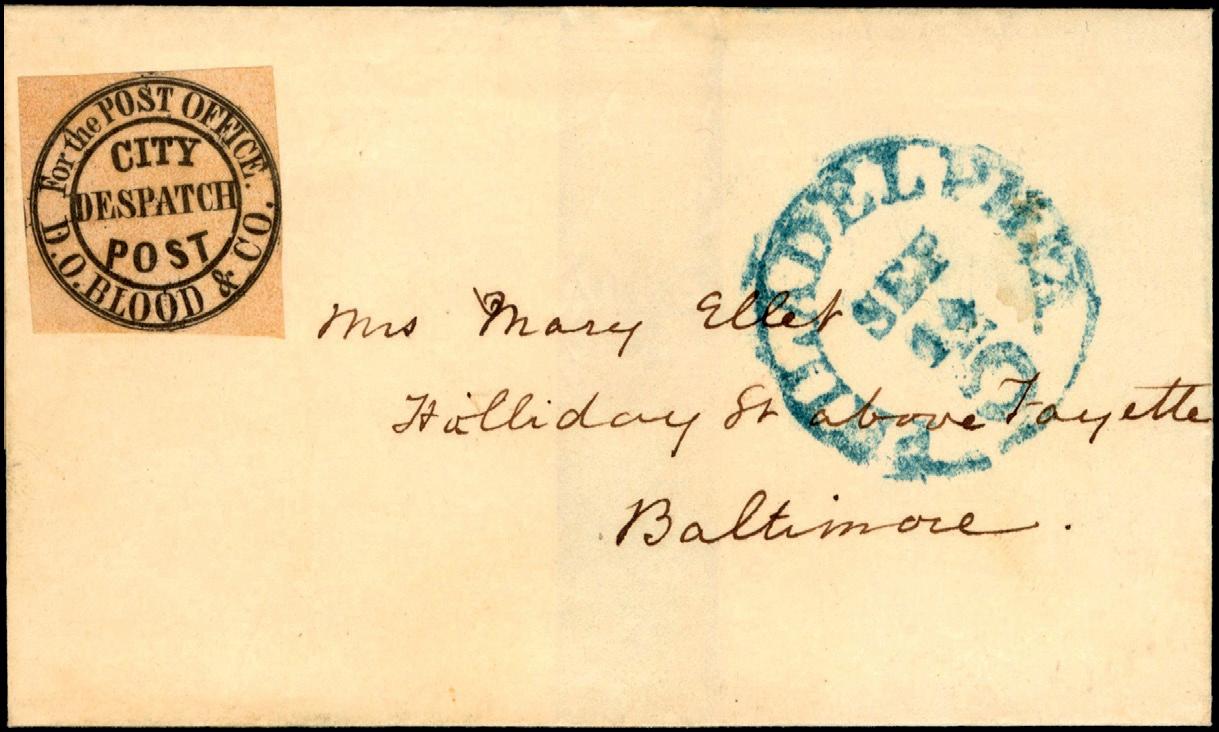 For the POST OFFICE.
CITY
DESPATCH
POST
D.O.BLOOD & CO.
PHILADELPHIA
SEP
Mrs Mary Ellet
Holliday St above Fayette
Baltimore.